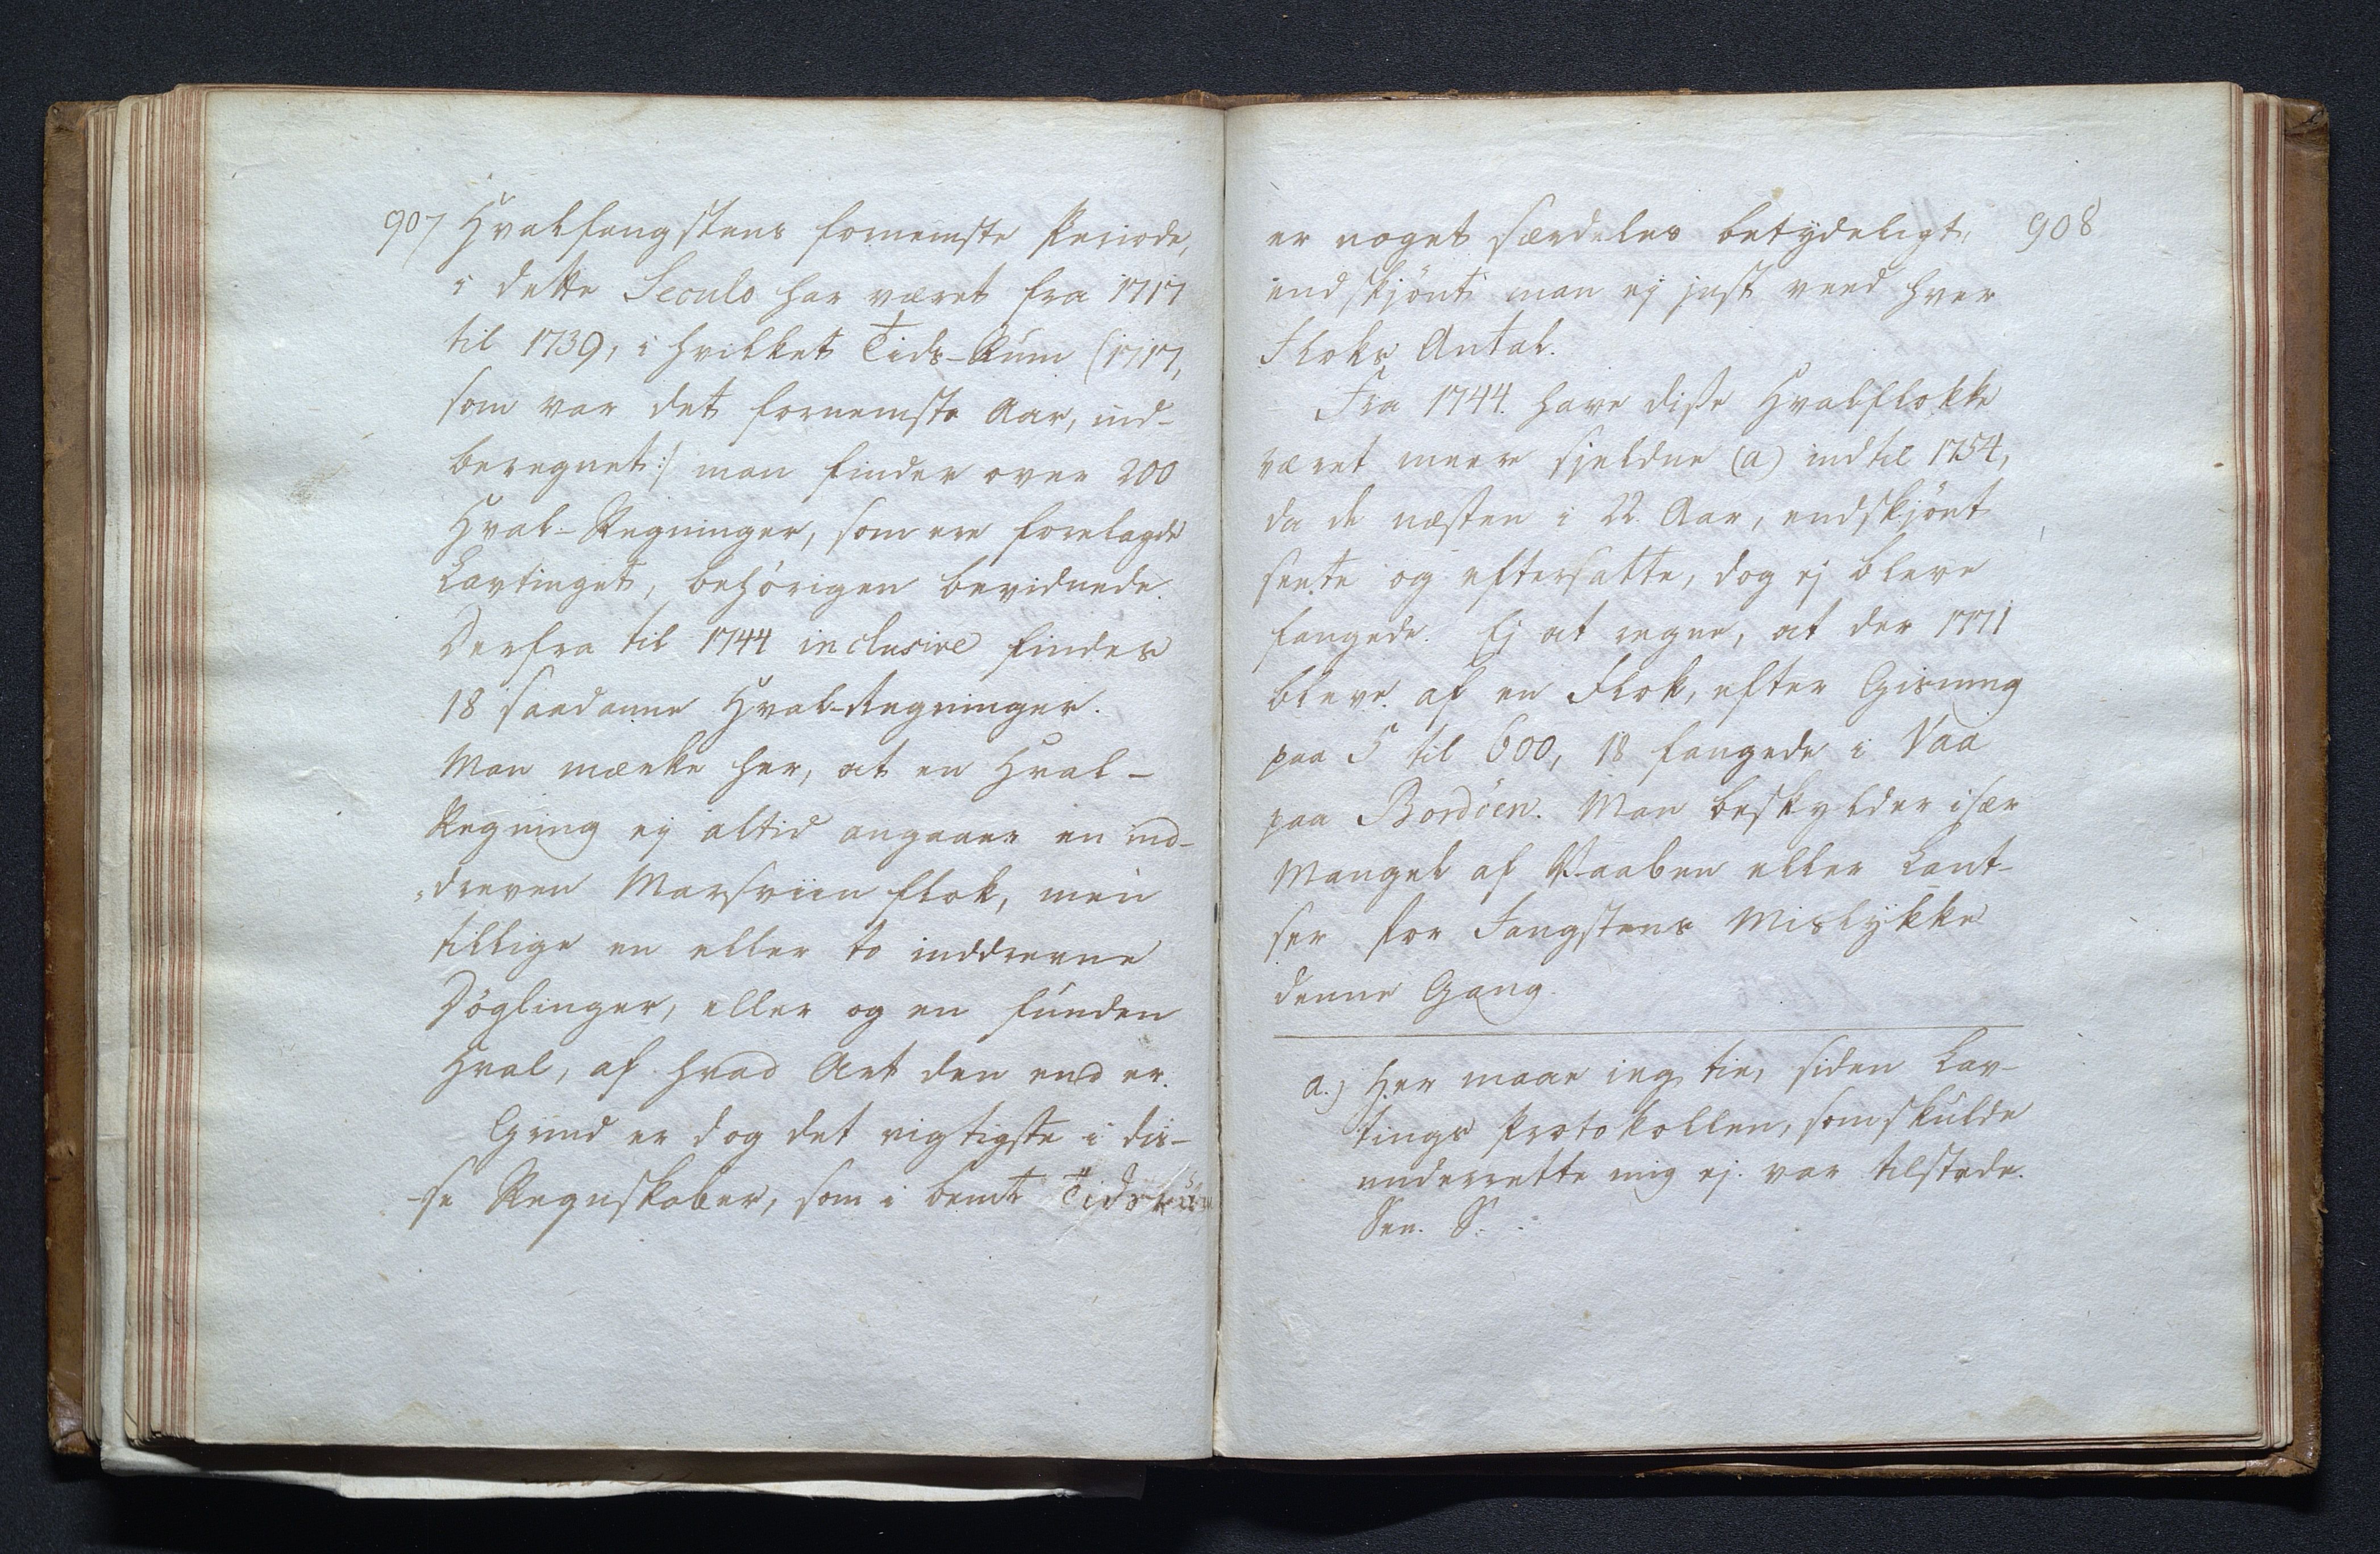 907 Hvalfangstens fornemste Periode,
i dette Seculo har været fra 1717
til 1739, i hvilket Tids-Rum (1717,
som var det fornemste Aar, ind-
beregnet:/ man finder over 200
Hval-Regninger, som ere forelagde
Lavtinget, behørigen bevidnede.
Derfra til 1744 inclusive findes
18 saadanne Hval-Regninger.
Man mærke her, at en Hval-
Regning ej altid angaaer en ind-
dreven Marsviin flok, men
tillige en eller to inddrevne
Døglinger, eller og en funden
Hval, af hvad Art den end er.
Grind er dog det vigtigste i dis-
-se Regnskaber, som i bemte Tidsrum
er noget særdeles betydeligt, 908
endskjönt man ej just veed hver
Floks Antal.
Fra 1744. have disse Hvalflokke
været meere sjeldne (a) indtil 1754,
da de næsten i 22 Aar, endskjönt
seete og eftersatte, dog ej bleve
fangede. Ej at regne, at der 1771
bleve af en Flok, efter Gisning
paa 5 til 600, 18 fangede i Vaa
paa Bordöen. Man beskylder især
Mangel af Vaaben eller Lant-
ser for Fangstens Mislykke
denne Gang.
a.) Her maae ieg tie, siden Lav-
tings Protokollen, som skulde
underrette mig ej var tilstede.
Sen. S.